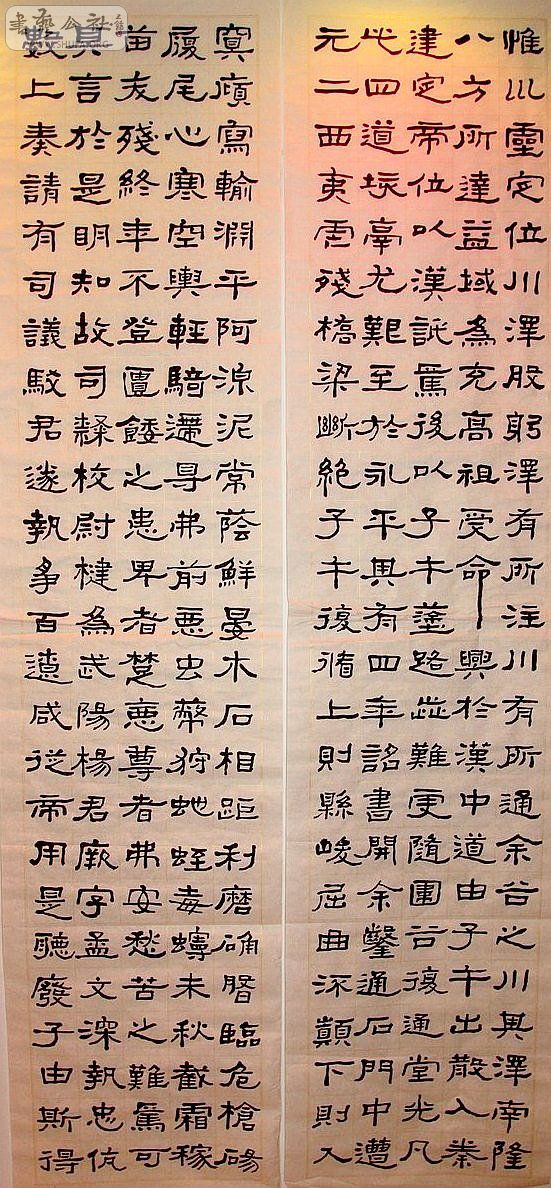 惟巛靈定位川澤股躬澤有所注川有所通余谷之川其澤南隆
八方所達益域為充高祖受命興於漢中道由子午出散入秦
建定帝位以漢詆焉後以子午塗路歰難更隨圍谷復通堂光凡
此四道垓鬲尤艱至於永平其有四年詔書開余鑿通石門中遭
元二西夷虐殘橋梁斷絕子午復循上則縣峻屈曲流顛下則入
冥傾寫輸淵平阿湶泥常蔭鮮晏木石相距利磨确磐臨危槍碭
履尾心寒空輿輕騎遰㝵弗前惡虫狩蛇蛭毒蟃未秋截霜稼
苗夭殘終年不登匱餧之患卑者楚惡尊者弗安愁苦之難焉可
具言於是明知故司隸校尉楗為武陽楊君厥字孟文深執忠伉
數上奏請有司議駮君遂執爭百遼咸從帝用是聽廢子由斯得
書藝公社